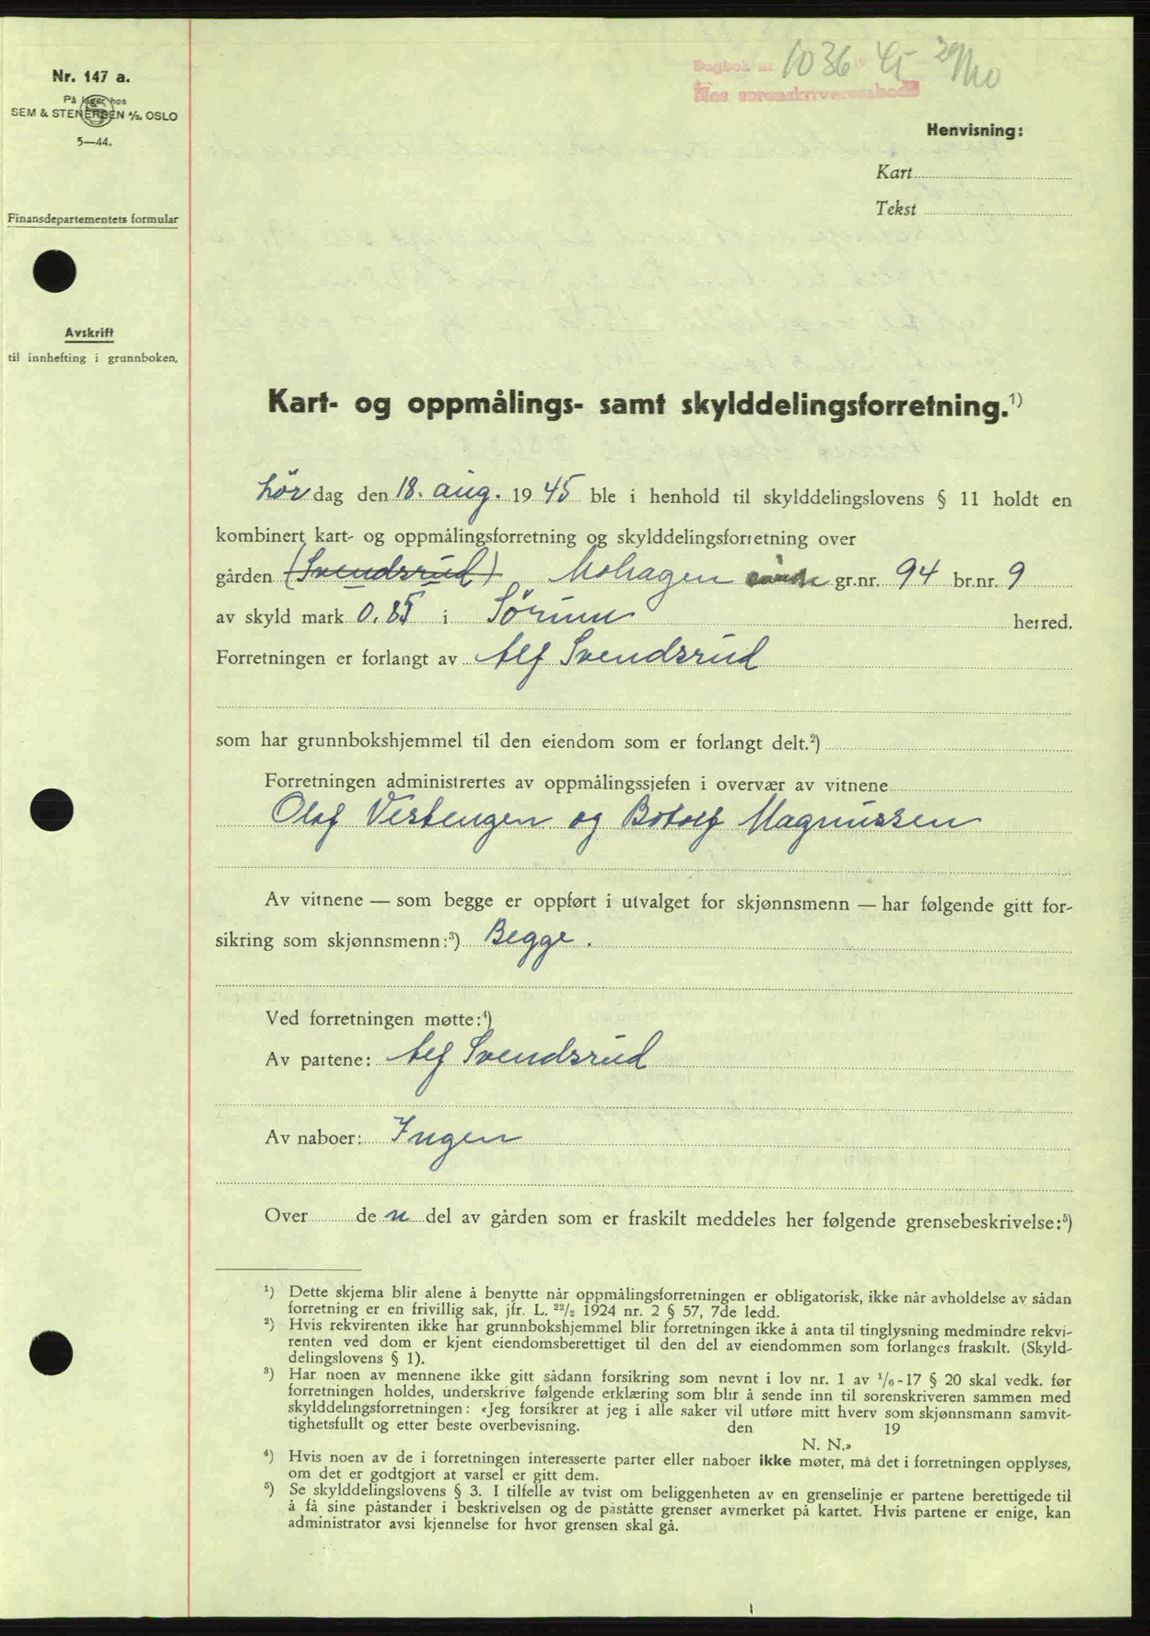 Nr. 147 a.
På lager hos
SEM & STENERSEN A/S. OSLO
5—44.
Finansdepartementets formular
Avskrift
til innhefting i grunnboken.
Dagbok nr 1036
Nes sorenskriverembede
Henvisning:
Kart
Tekst
Kart- og oppmålings- samt skylddelingsforretning.¹)
Lördag den 18. aug. 1945 ble i henhold til skylddelingslovens § 11 holdt en
kombinert kart- og oppmålingsforretning og skylddelingsforretning over
gården (Svendsrud) Mohagen gr.nr. 94 br.nr. 9
av skyld mark 0.85 i Sörum herred.
Forretningen er forlangt av Alf Svendsrud
som har grunnbokshjemmel til den eiendom som er forlangt delt.²)
Forretningen administrertes av oppmålingssjefen i overvær av vitnene
Olaf Vestengen og Botolf Magnussen
Av vitnene — som begge er oppført i utvalget for skjønnsmenn — har følgende gitt for-
sikring som skjønnsmenn:³) Begge.
Ved forretningen møtte:⁴)
Av partene: Alf Svendsrud
Av naboer: Ingen
Over de n del av gården som er fraskilt meddeles her følgende grensebeskrivelse:⁵)
¹) Dette skjema blir alene å benytte når oppmålingsforretningen er obligatorisk, ikke når avholdelse av sådan
forretning er en frivillig sak, jfr. L. ²²/₂ 1924 nr. 2 § 57, 7de ledd.
²) Hvis rekvirenten ikke har grunnbokshjemmel blir forretningen ikke å anta til tinglysning medmindre rekvi-
renten ved dom er kjent eiendomsberettiget til den del av eiendommen som forlanges fraskilt. (Skyld-
delingslovens § 1).
³) Har noen av mennene ikke gitt sådann forsikring som nevnt i lov nr. 1 av ¹/₆-17 § 20 skal vedk. før
forretningen holdes, underskrive følgende erklæring som blir å sende inn til sorenskriveren sammen med
skylddelingsforretningen: «Jeg forsikrer at jeg i alle saker vil utføre mitt hverv som skjønnsmann samvit-
tighetsfullt og etter beste overbevisning. den 19
N. N.»
⁴) Hvis noen av de i forretningen interesserte parter eller naboer ikke møter, må det i forretningen opplyses,
om det er godtgjort at varsel er gitt dem.
⁵) Se skylddelingslovens § 3. I tilfelle av tvist om beliggenheten av en grenselinje er partene berettigede til
å få sine påstander i beskrivelsen og de påståtte grenser avmerket på kartet. Hvis partene er enige, kan
administrator avsi kjennelse for hvor grensen skal gå.